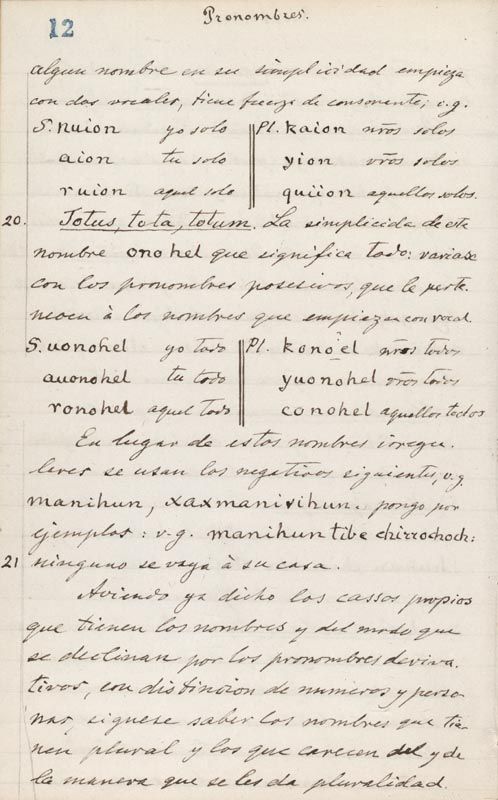 12
Pronombres.
algun nombre en su simplicidad empieza
con dos vocales, tiene fuerza de consonante; v.g.
S. nuion yo solo Pl. kaion nr̃os solos
aion tu solo yion vr̃os solos
ruion aquel solo quiion aquellos solos.
20. Totus, tota, totum. La simplicida de este
nombre onohel que significa todo: variase
con los pronombres posesivos, que le perte-
necen à los nombres que empiezan con vocal.
S. uonohel yo todo Pl. konoel nr̃os todos
auonohel tu todo yuonohel vr̃os todos
ronohel aquel todo conohel aquellos todos
En lugar de estos nombres irregu-
lares se usan los negativos siguientes, v.g.
manihun, xaxmanisihun. pongo por
ejemplos: v.g. manihun tibe chirrochoch:
21 ninguno se vaya à su casa.
Aviendo ya dicho los cassos propios
que tienen los nombres y del modo que
se declinan por los pronombres deriva-
tivos, con distincion de numeros y perso-
nas, siguese saber los nombres que tie-
nen plural y los que carecen del y de
la manera que se les da pluralidad.